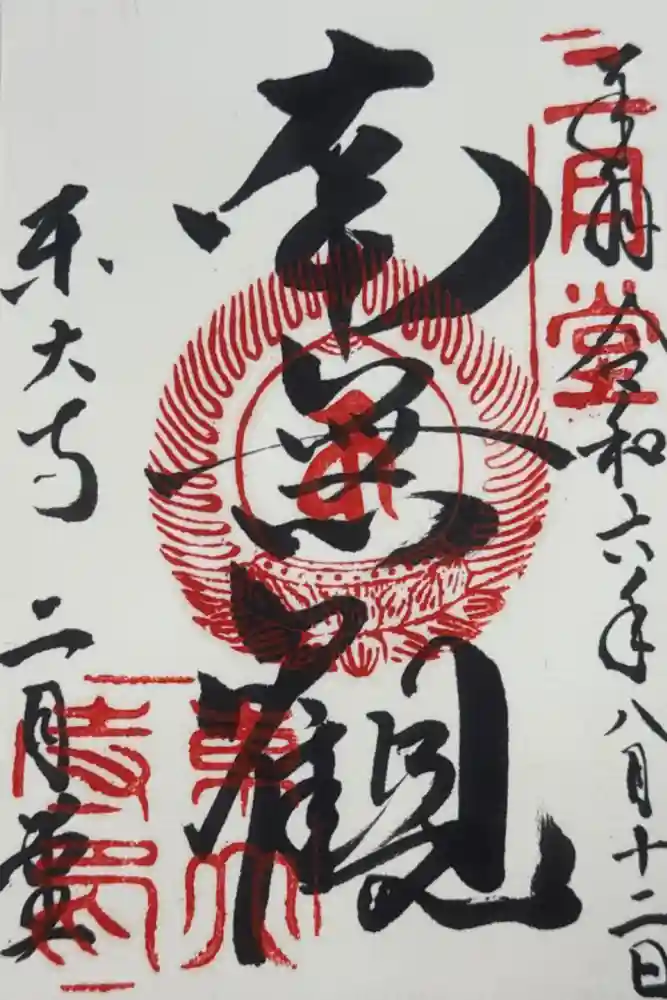 奉拝 令和六年八月十二日
二月堂
南無観
東大寺 二月堂
東大寺印